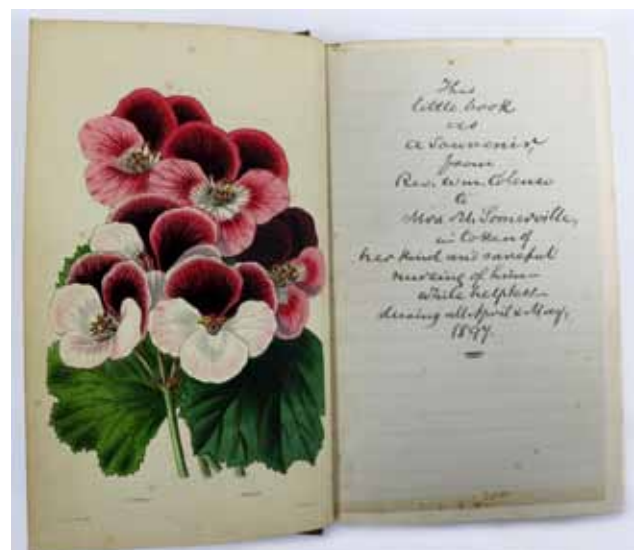 This
little book
as
a Souvenir,
from
Rev. Wm. Colenso
to
Mrs. M. Somerville,
in token of
her kind and careful
nursing of him—
while helpless—
during all April & May,
1897.